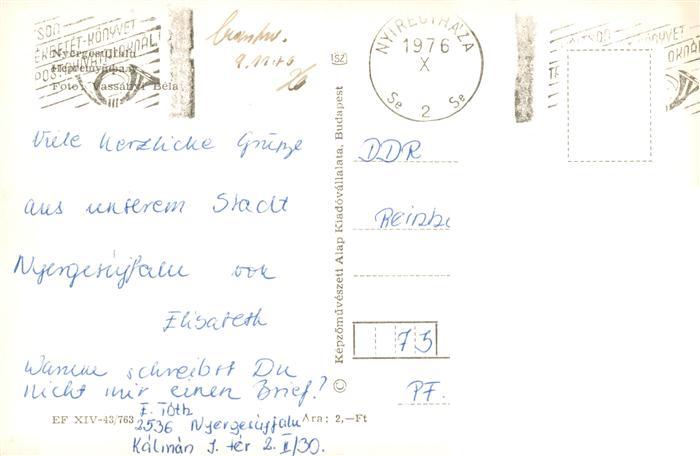 KÖNYVET
POSTAHIVATALOKNÁL
Nyergesújfalu
Foto: Vassányi Béla
9.11.76
NYÍREGYHÁZA
1976
X
2
Se Se
KÖNYVET
SZ
Viele herzliche Grüße
aus unserem Stadt
Nyergesújfalu von
Elisabeth
Warum schreibst Du
nicht mir einen Brief?
E. Tóth
2536 Nyergesújfalu
Kálmán J. tér 2. II/30.
EF XIV-43/763
Ára: 2,—Ft
© Képzőművészeti Alap Kiadóvállalata, Budapest
DDR
75
PF.